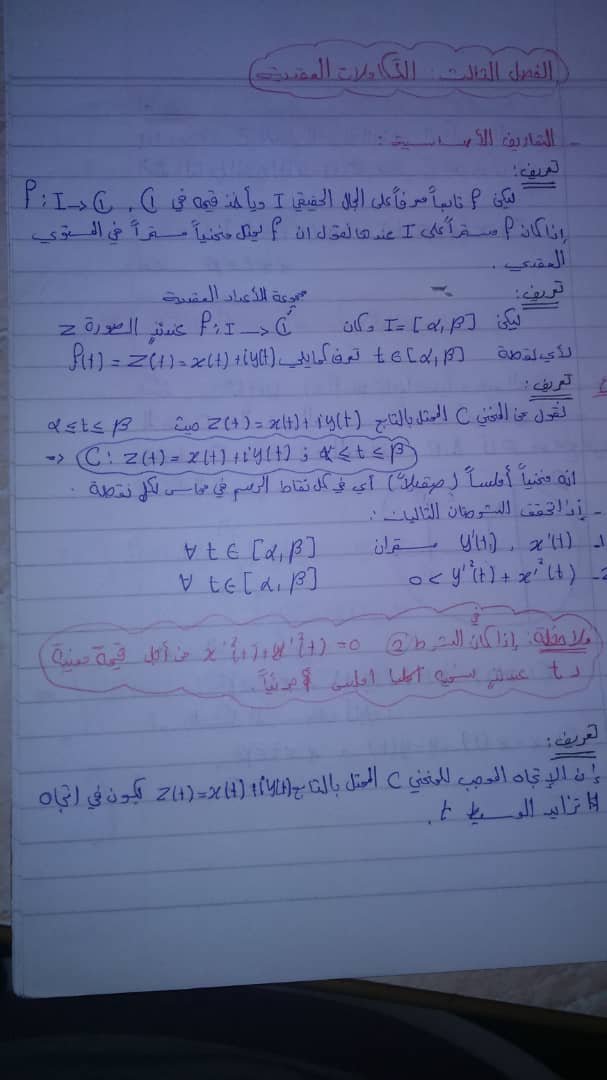 الفصل الثالث: التكاملات العقدية
- التعاريف الأساسية:
تعريف:
ليكن f تابعاً معرفاً على المجال الحقيقي I ويأخذ قيمه في ℂ ، f: I → ℂ
إذا كان f مستمراً على I عندها نقول ان f يمثل منحنياً مستمراً في المستوي
العقدي .
مجموعة الأعداد العقدية
تعريف:
ليكن I = [α, β] وكان f: I → ℂ عندئذٍ الصورة z
لأي نقطة t ∈ [α, β] تعرف كمايلي f(t) = z(t) = x(t) + iy(t)
تعريف:
نقول عن المنحني C الممثل بالتابع z(t) = x(t) + iy(t) حيث α ≤ t ≤ β
⇐ C: z(t) = x(t) + iy(t) ; α ≤ t ≤ β
انه منحنياً أملساً (صقيلاً) أي في كل نقاط الرسم في مماس لكل نقطة .
- إذا تحقق الشرطان التاليان :
1- x'(t) , y'(t) مستمران ∀ t ∈ [α, β]
2- 0 < y'²(t) + x'²(t) ∀ t ∈ [α, β]
ملاحظة: إذا كان في الشرط ② x'²(t) + y'²(t) = 0 من أجل قيمة معينة
لـ t عندئذٍ نسميه أملس جزئياً.
تعريف:
إن الإتجاه الموجب للمنحني C الممثل بالتابع z(t) = x(t) + iy(t) يكون في اتجاه
تزايد الوسيط t .